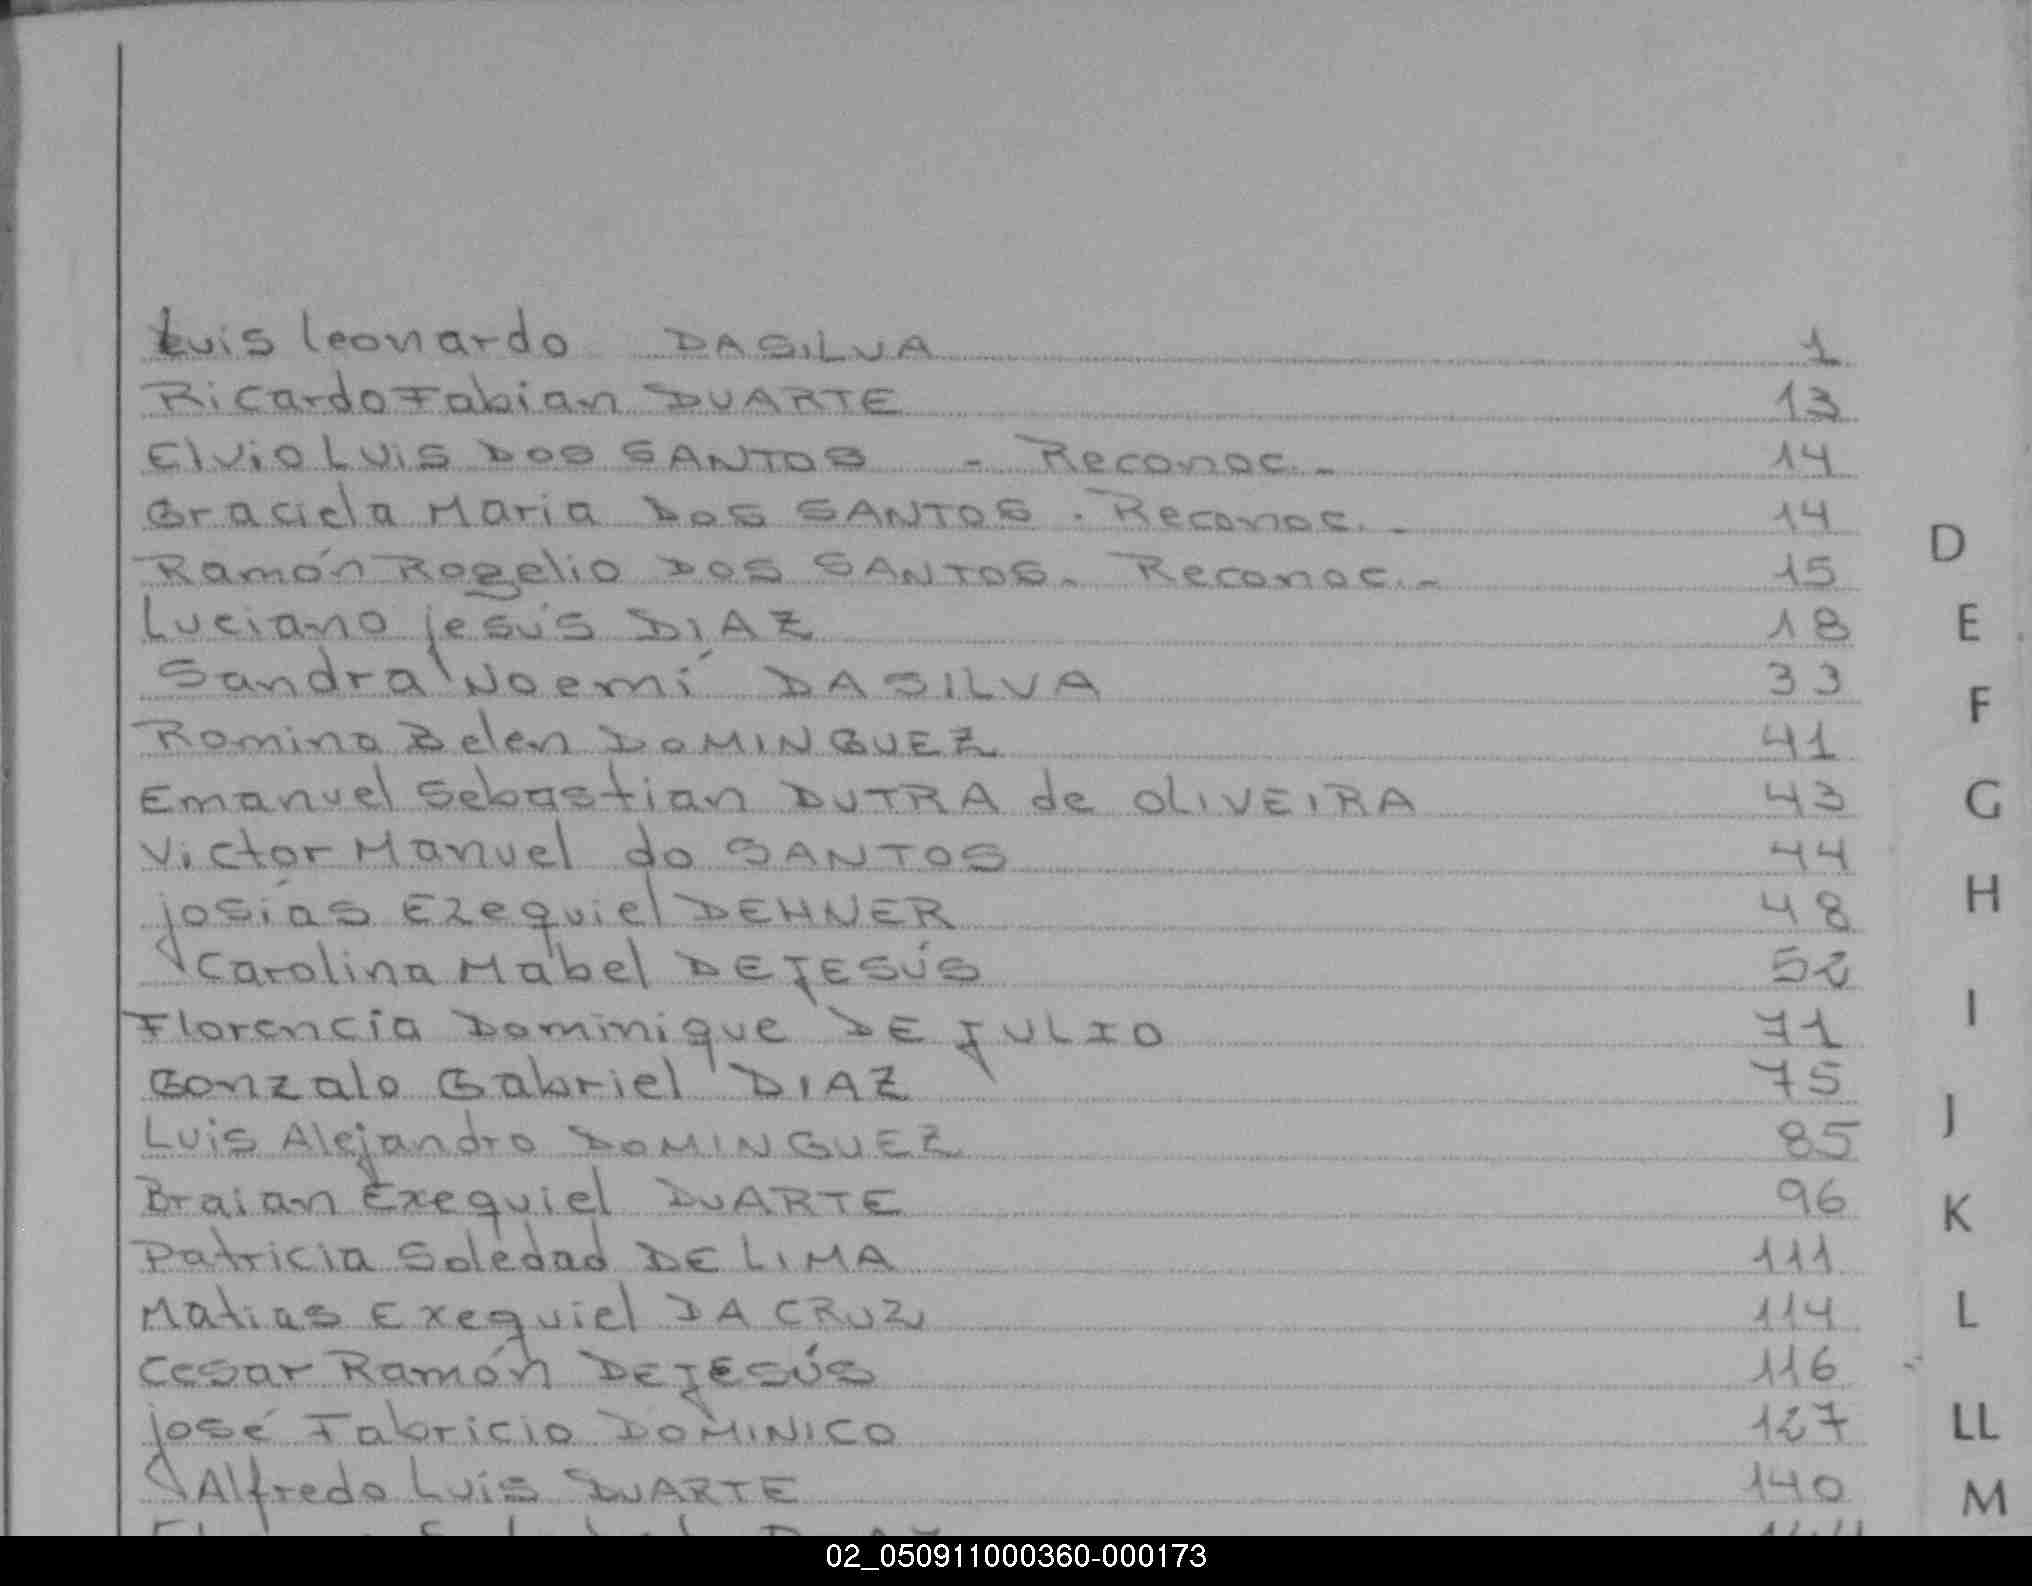 Luis Leonardo DASILVA 1
Ricardo Fabian DUARTE 13
Elvio Luis DOS SANTOS - Reconoc.- 14
Graciela Maria DOS SANTOS. Reconoc.- 14
Ramón Rogelio DOS SANTOS. Reconoc.- 15
Luciano jesús DIAZ 18
Sandra Noemí DASILVA 33
Romina Belen DOMINGUEZ 41
Emanuel Sebastian DUTRA de OLIVEIRA 43
Victor Manuel do SANTOS 44
josías Ezequiel DEHNER 48
Carolina Mabel DEJESÚS 52
Florencia Dominique DE JULIO 71
Gonzalo Gabriel DIAZ 75
Luis Alejandro DOMINGUEZ 85
Braian Exequiel DUARTE 96
Patricia Soledad DE LIMA 111
Matias Exequiel DA CRUZ 114
Cesar Ramón DEJESÚS 116
josé Fabricio DOMINICO 127
Alfredo Luis DUARTE 140
D
E
F
G
H
I
J
K
L
LL
M
02_050911000360-000173